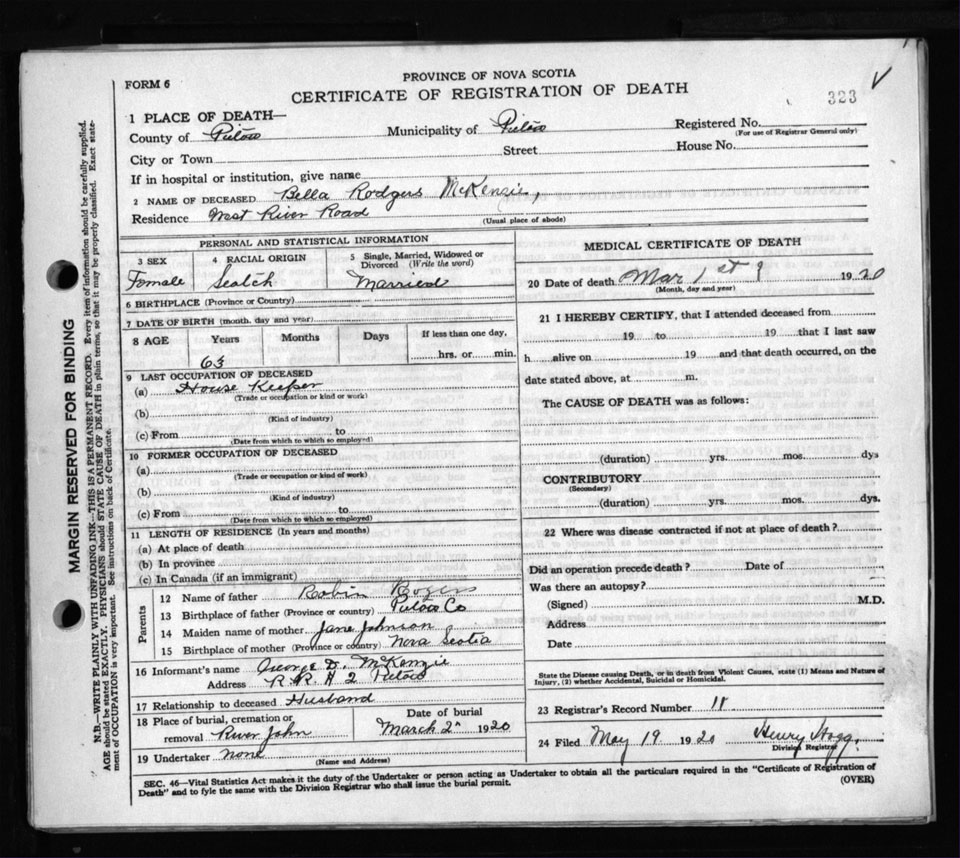 PROVINCE OF NOVA SCOTIA
FORM 6
CERTIFICATE OF REGISTRATION OF DEATH
323
1 PLACE OF DEATH—
County of Pictou Municipality of Pictou Registered No.
(For use of Registrar General only)
City or Town Street House No.
If in hospital or institution, give name
2 NAME OF DECEASED Bella Rodgers McKenzie,
Residence West River Road
(Usual place of abode)
PERSONAL AND STATISTICAL INFORMATION
3 SEX 4 RACIAL ORIGIN 5 Single, Married, Widowed or Divorced (Write the word)
Female Scotch Married
6 BIRTHPLACE (Province or Country)
7 DATE OF BIRTH (month, day and year)
8 AGE Years Months Days If less than one day,
hrs. or min.
63
9 LAST OCCUPATION OF DECEASED
(a) House Keeper
(Trade or occupation or kind or work)
(b)
(Kind of industry)
(c) From to
(Date from which to which so employed)
10 FORMER OCCUPATION OF DECEASED
(a)
(Trade or occupation or kind of work)
(b)
(Kind of industry)
(c) From to
(Date from which to which so employed)
11 LENGTH OF RESIDENCE (In years and months)
(a) At place of death
(b) In province
(c) In Canada (if an immigrant)
Parents
12 Name of father Robin Rogers
13 Birthplace of father (Province or country) Pictou Co
14 Maiden name of mother Jane Johnson
15 Birthplace of mother (Province or country) Nova Scotia
16 Informant's name George D. McKenzie
Address R.R # 2 Pictou
17 Relationship to deceased Husband
18 Place of burial, cremation or removal River John
Date of burial March 2 1920
19 Undertaker none
(Name and Address)
MEDICAL CERTIFICATE OF DEATH
20 Date of death Mar 1st 1920
(Month, day and year)
21 I HEREBY CERTIFY, that I attended deceased from
19 to 19 that I last saw
h alive on 19 and that death occurred, on the
date stated above, at m.
The CAUSE OF DEATH was as follows:
(duration) yrs. mos. dys
CONTRIBUTORY
(Secondary)
(duration) yrs. mos. dys.
22 Where was disease contracted if not at place of death?
Did an operation precede death? Date of
Was there an autopsy?
(Signed) M.D.
Address
Date
State the Disease causing Death, or in death from Violent Causes, state (1) Means and Nature of
Injury, (2) whether Accidental, Suicidal or Homicidal.
23 Registrar's Record Number 11
24 Filed May 19 1920 Henry Hogg.
Division Registrar
SEC. 46—Vital Statistics Act makes it the duty of the Undertaker or person acting as Undertaker to obtain all the particulars required in the "Certificate of Registration of
Death" and to fyle the same with the Division Registrar who shall issue the burial permit.
(OVER)
MARGIN RESERVED FOR BINDING
N.B.—WRITE PLAINLY WITH UNFADING INK—THIS IS A PERMANENT RECORD. Every item of information should be carefully supplied.
AGE should be stated EXACTLY. PHYSICIANS should STATE CAUSE OF DEATH in plain terms, so that it may be properly classified. Exact state-
ment of OCCUPATION is very important. See instructions on back of Certificate.